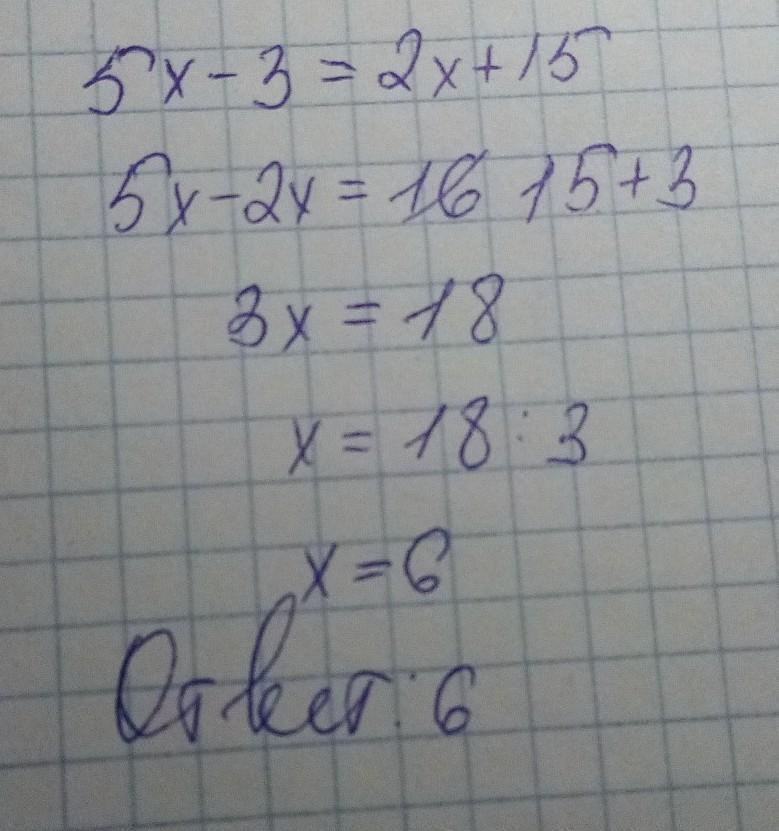 5x-3=2x+15
5x-2x=16 15+3
3x=18
x=18:3
x=6
Ответ: 6